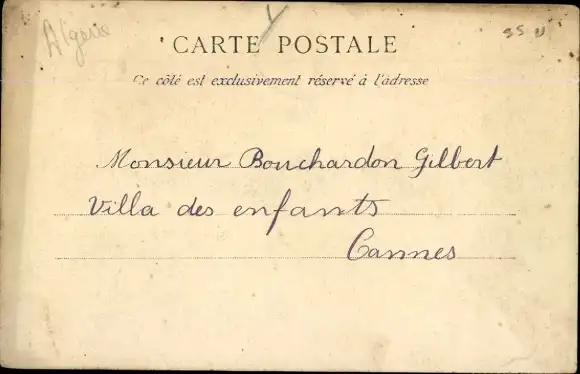 Algérie
CARTE POSTALE
Ce côté est exclusivement réservé à l'adresse
Monsieur Bouchardon Gilbert
Villa des enfants
Cannes